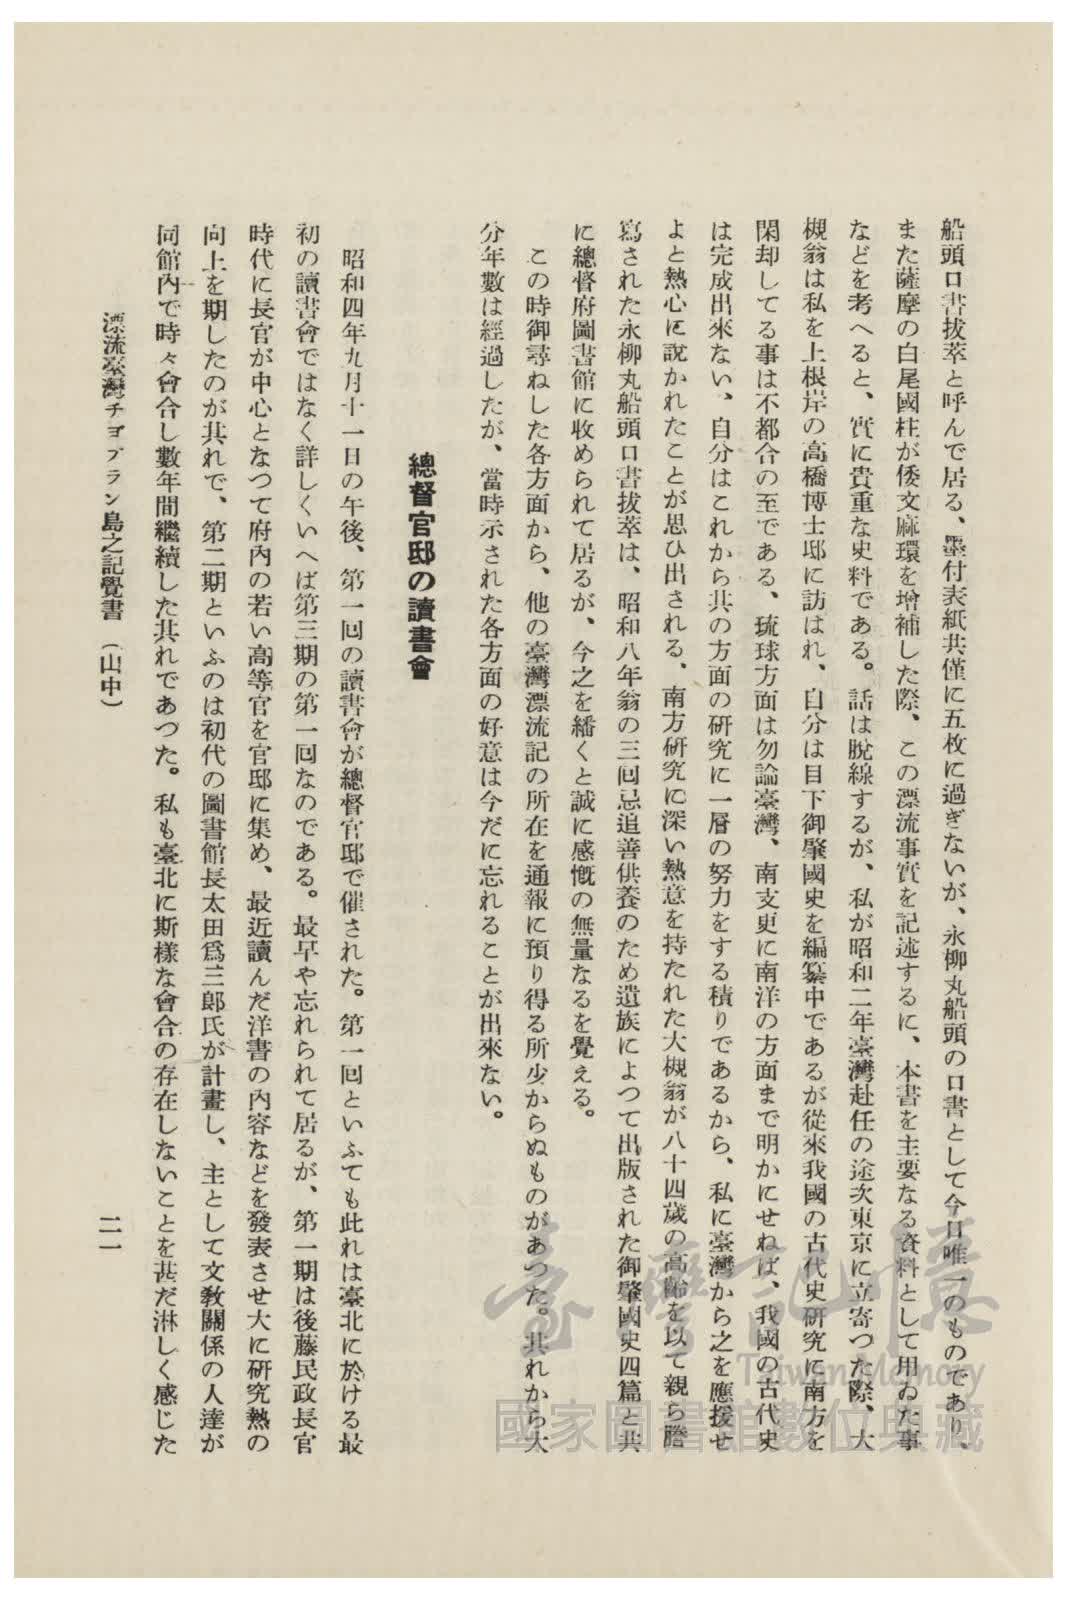 船頭口書拔萃と呼んで居る、墨付表紙共僅に五枚に過ぎないが、永柳丸船頭の口書として今日唯一のものであり、
また薩摩の白尾國柱が倭文麻環を增補した際、この漂流事實を記述するに、本書を主要なる資料として用ゐた事
などを考へると、實に貴重な史料である。話は脫線するが、私が昭和二年臺灣赴任の途次東京に立寄つた際、大
槻翁は私を上根岸の高橋博士邸に訪はれ、自分は目下御肇國史を編纂中であるが從來我國の古代史硏究に南方を
閑却してる事は不都合の至である、琉球方面は勿論臺灣、南支更に南洋の方面まで明かにせねば、我國の古代史
は完成出來ない、自分はこれから共の方面の硏究に一層の努力をする積りであるから、私に臺灣から之を應援せ
よと熱心に說かれたことが思ひ出される、南方硏究に深い熱意を持たれた大槻翁が八十四歲の高齡を以て親ら謄
寫された永柳丸船頭口書拔萃は、昭和八年翁の三回忌追善供養のため遺族によつて出版された御肇國史四篇と共
に總督府圖書館に收められて居るが、今之を繙くと誠に感慨の無量なるを覺える。
この時御尋ねした各方面から、他の臺灣漂流記の所在を通報に預り得る所少からぬものがあつた。其れから大
分年數は經過したが、當時示された各方面の好意は今だに忘れることが出來ない。
總督官邸の讀書會
昭和四年九月十一日の午後、第一回の讀書會が總督官邸で催された。第一回といふても此れは臺北に於ける最
初の讀書會ではなく詳しくいへば第三期の第一回なのである。最早や忘れられて居るが、第一期は後藤民政長官
時代に長官が中心となつて府內の若い高等官を官邸に集め、最近讀んだ洋書の內容などを發表させ大に硏究熱の
向上を期したのが其れで、第二期といふのは初代の圖書館長太田爲三郞氏が計畫し、主として文敎關係の人達が
同館內で時々會合し數年間繼續した其れであつた。私も臺北に斯樣な會合の存在しないことを甚だ淋しく感じた
漂流臺灣チヨプラン島之記覺書 (山中)
二一
臺灣記憶
Taiwan Memory
國家圖書館數位典藏